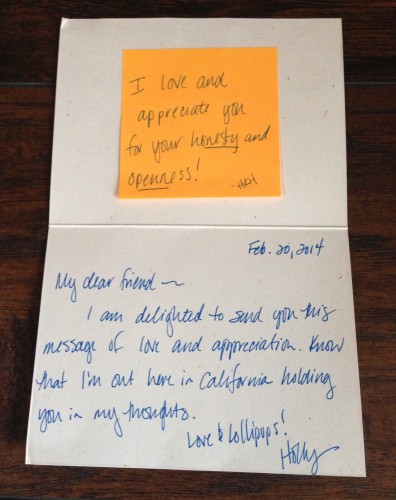 I love and
appreciate you
for your honesty and
openness!
-HKH
Feb. 20, 2014
My dear friend ~
I am delighted to send you this
message of love and appreciation. Know
that I'm out here in California holding
you in my thoughts.
Love & Lollipops!
Holly